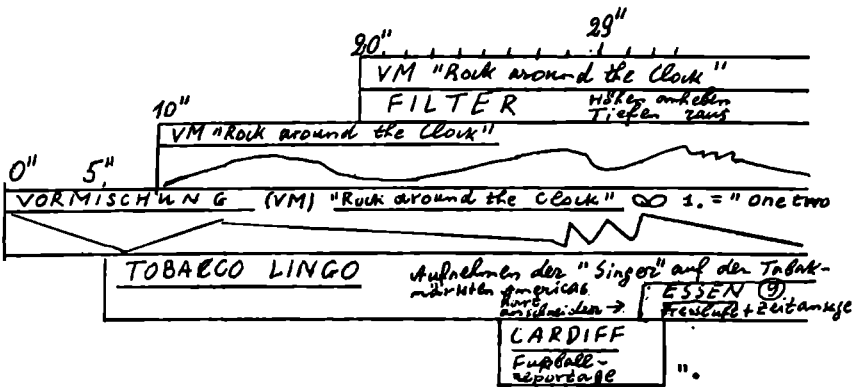 20" 29"
VM "Rock around the Clock"
FILTER Höhen anheben
Tiefen raus
10"
VM "Rock around the Clock"
0" 5"
VORMISCHUNG (VM) "Rock around the Clock" ∞ 1. = "one two
TOBACCO LINGO Aufnehmen der "Singer" auf den Tabak-
märkten Americas
hart
anschneiden → ESSEN ⑨
+ Zeitansage
CARDIFF
Fußball-
reportage ".